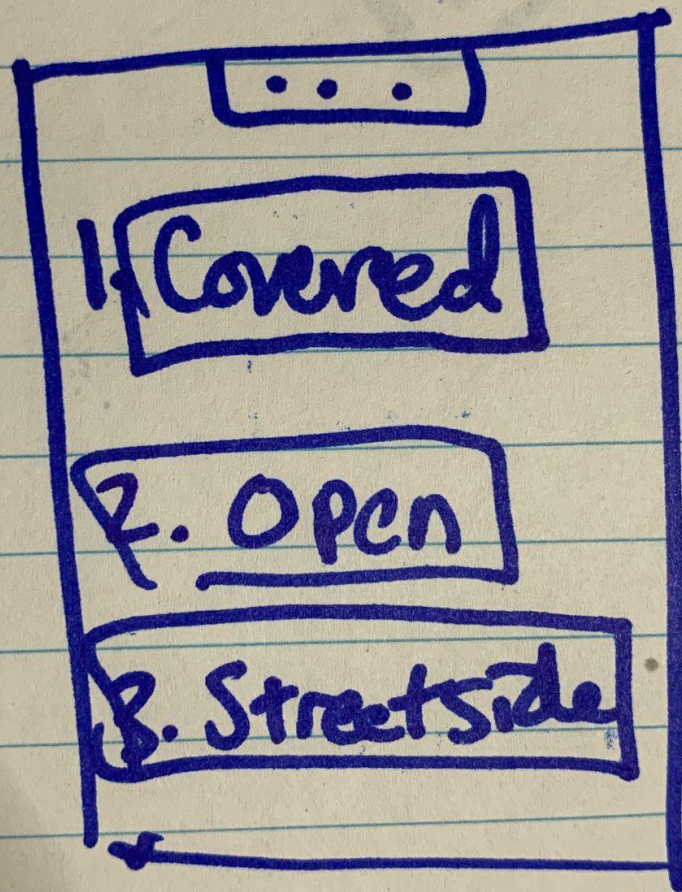 1. Covered
2. Open
3. Streetside